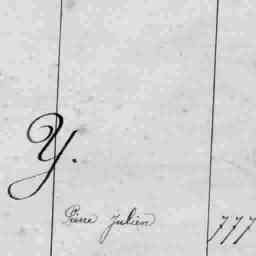 Y.
Pierre Julien 777